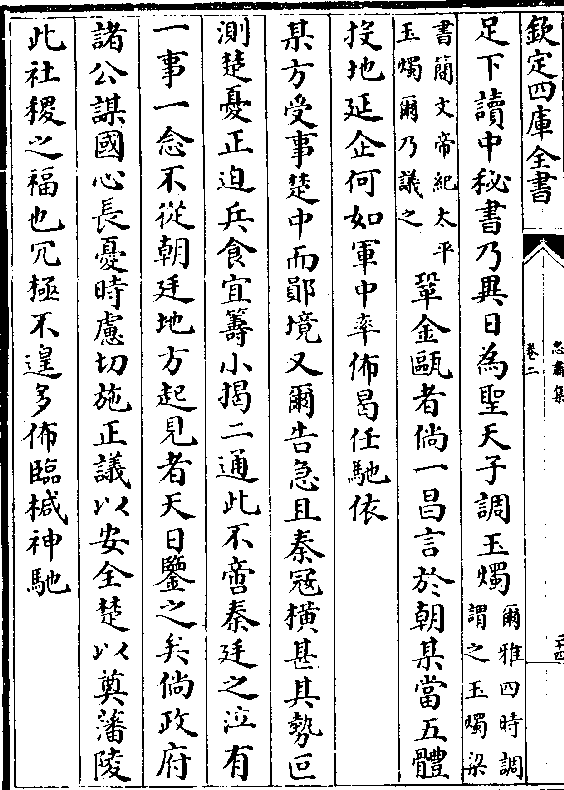 欽定四庫全書
忠肅集
卷二
足下讀中秘書乃異日為聖天子調玉燭爾雅四時調謂之玉燭梁
書簡文帝紀太平玉燭爾乃議之鞏金甌者倘一昌言於朝某當五體
投地延企何如軍中率佈曷任馳依
某方受事楚中而鄖境又爾告急且秦冦橫甚其勢叵
測楚憂正迫兵食宜籌小揭二通此不啻秦廷之泣有
一事一念不從朝廷地方起見者天日鑒之矣倘政府
諸公謀國心長憂時慮切施正議以安全楚以奠藩陵
此社稷之福也冗極不遑多佈臨椷神馳